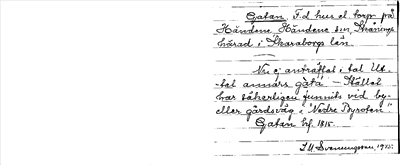 Gatan. F.d. hus el. torp på
Händene, Händene s:n, 
härad i Skaraborgs län.
Nu ej anträffat i tal. Ut-
tal annars gàta. - Stället
har säkerligen funnits vid by-
eller gårdsväg i "Nedre Byroten".
Gatan hf. 1815.
J. A. Svenningsson, 1925.